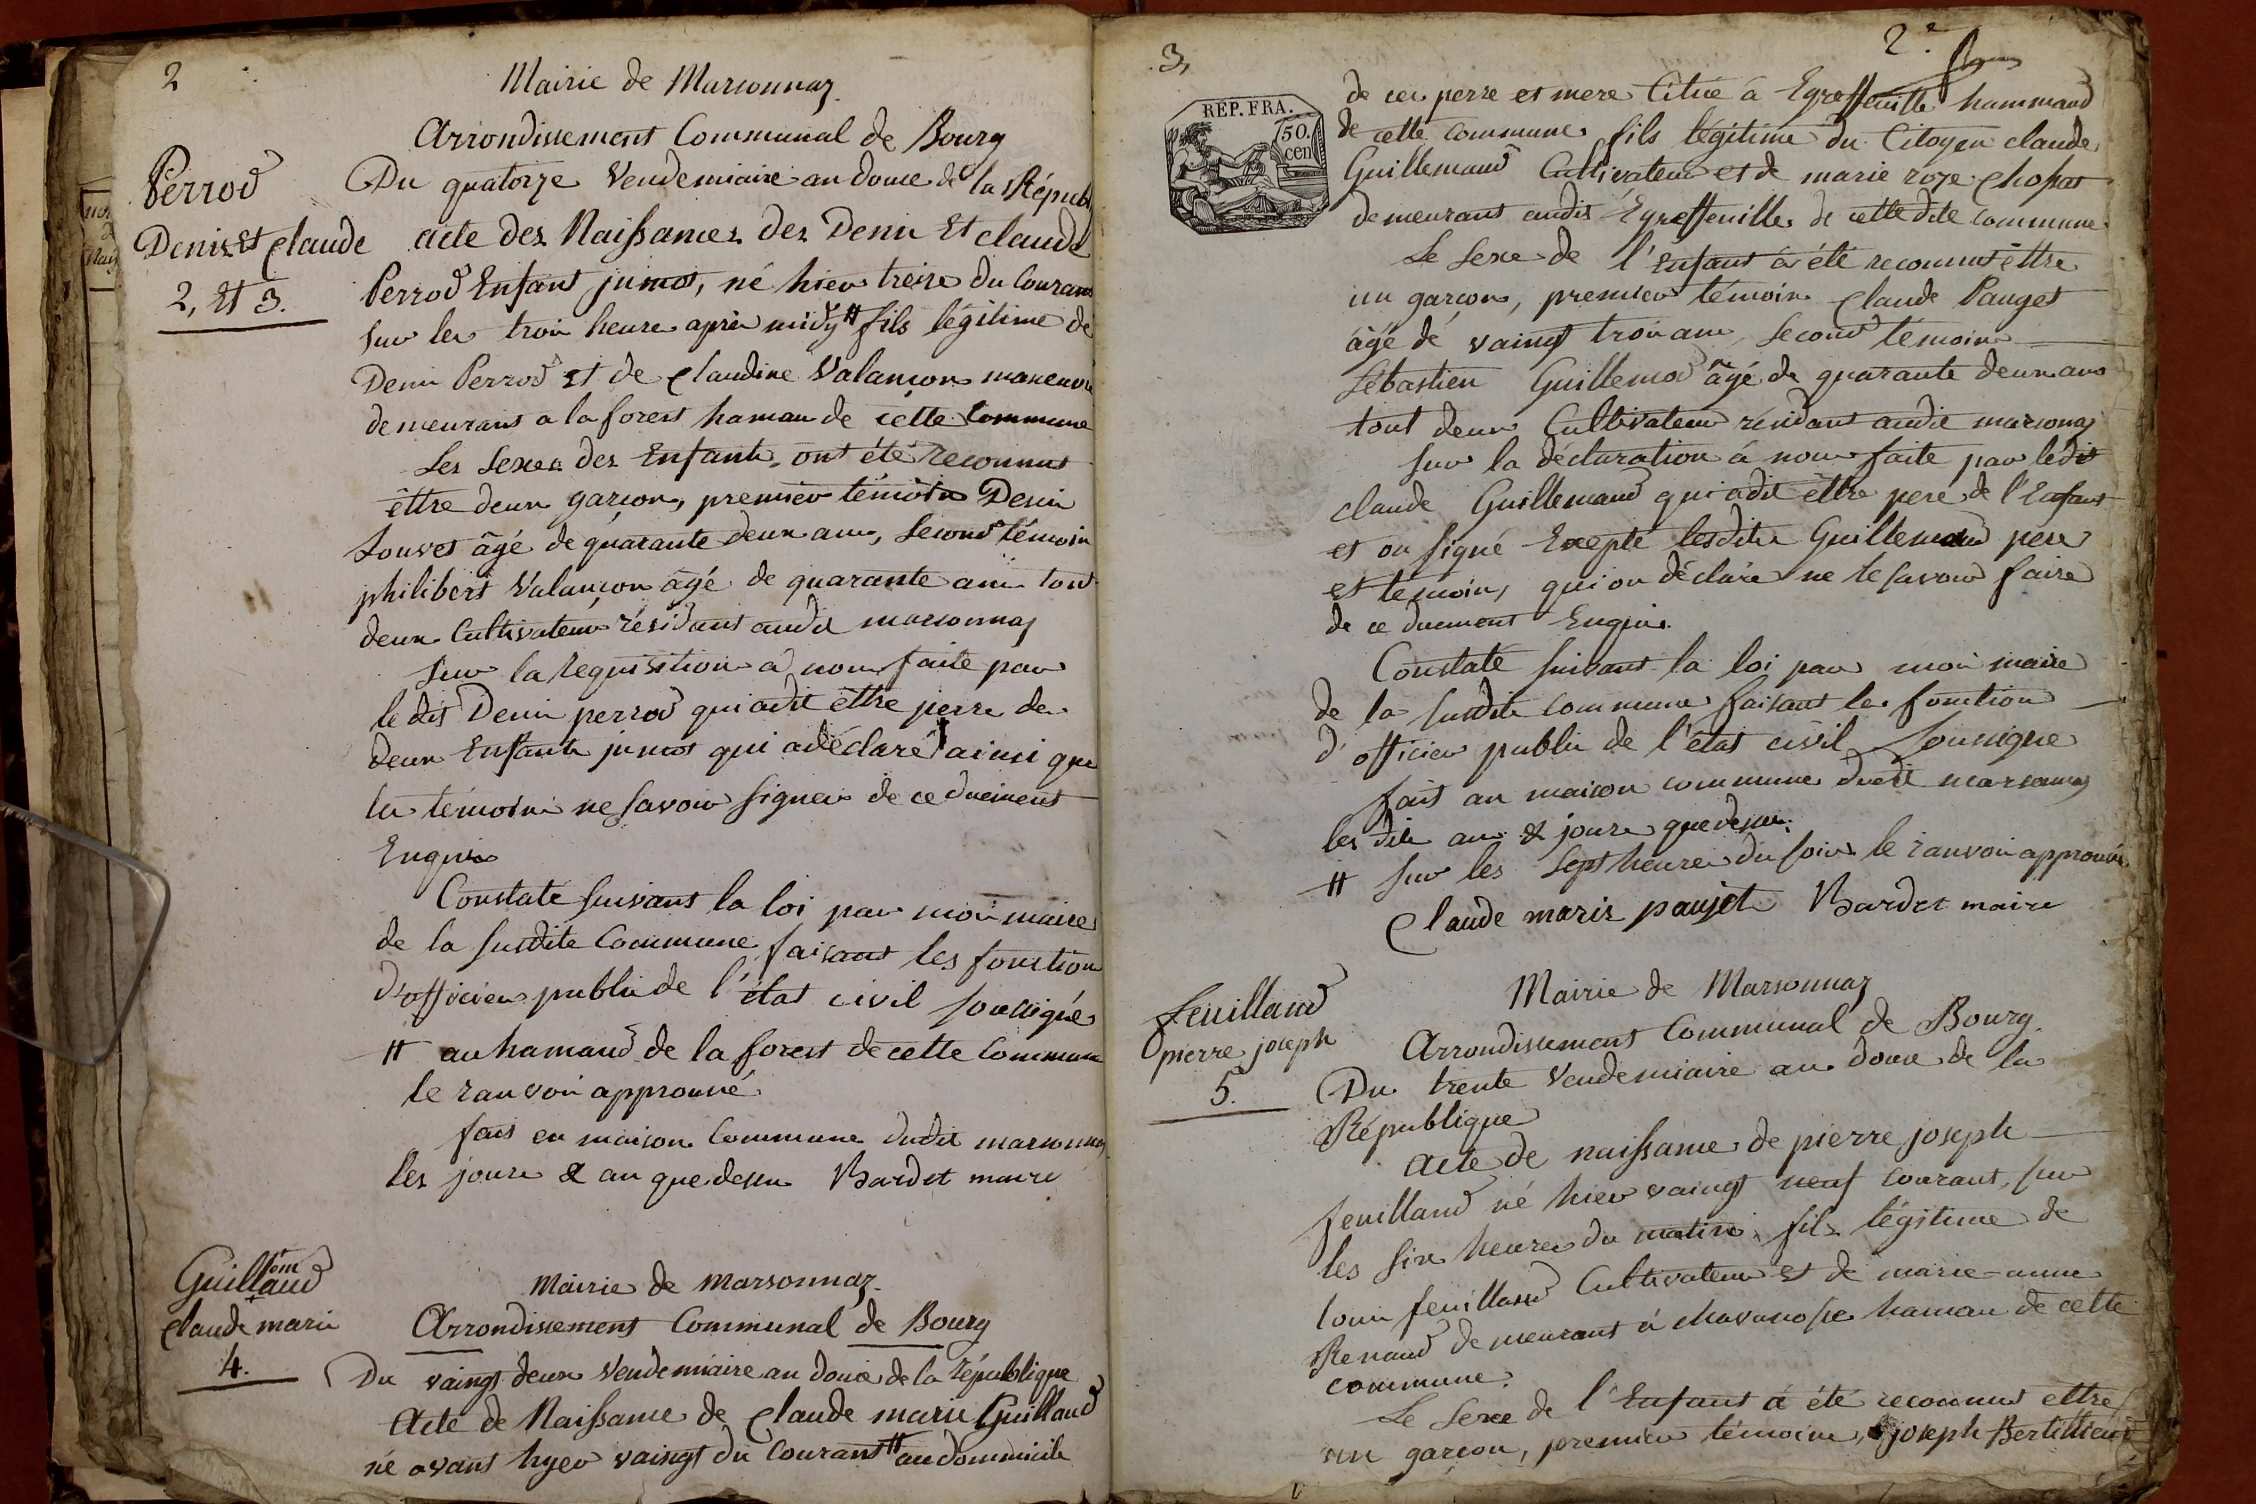 2
Mairie de Marsonnaz
Arrondissement Communal de Bourg
Perrod
Denis et claude
2, Et 3.
Du quatorze Vendemiaire an douze de la Républ
acte des Naissances des Denis Et claude
Perrod Enfant jumos, né hier treize du Courant
sur les trois heure après midy # fils légitime de
Denis Perrod et de Claudine Valançon maneuvre
demeurans a la forest hamau de cette Commune
Les sexes des Enfants ont été reconnus
êttre deux garçons, premier témoin Denis
Souvet âgé de quarante deux ans, second témoin
philibert Valançon âgé de quarante ans tout
deux Cultivateurs résidant audit marsonnaz
Sur la requisition à nous faite par
ledit Denis perrod qui a dit êttre perre des
deux Enfants jumos qui a déclaré ainsi que
les témoins ne savoir signer de ce duement
Enquis
Constaté suivant la loi par moi maire
de la susdite Commune faisant les fonction
d'officier public de l'état civil soussigné
# au hamaud de la forest de cette Commune
le ranvoi approuvé
fais en maison Commune dudit marsonnaz
les jours & an que dessu Bardet maire
Guillaud
om
Claude marie
4.
Mairie de marsonnaz
Arrondissement Communal de Bourg
Du vaingt deux Vendemiaire an douze de la république
Acte de Naissance de Claude marie Guillaud
né avant hyer vaingt du Courant # au dommicile
3,
2e
REP. FRA.
50.
cen
de ces perre et mere Citué a Egreffeuille hammaud
de cette commune fils légitime du Citoyen claude
Guillemaud Cultivateur et de marie roze Chossat
demeurans audit Egreffeuille de cette dite commune
Le sexe de l'Enfant à été reconnut êttre
un garçon, premier témoin Claude Pauget
âgé de vaingt trois ans, second témoin
Sébastien Guillemod âgé de quarante deux ans
tout deux Cultivateurs résidant audit marsonaz
Sur la déclaration à nous faite par ledit
claude Guillemaud qui a dit êttre pere de l'Enfant
et on signé Exepté lesdits Guillemaud pere
et témoin, qui on déclaré ne le savoir faire
de ce duement Enquis.
Constaté suivant la loi par moi maire
de la susdite commune faisant les fonction
d'officier public de l'état civil soussigné
fait an maison commune dudit marsonnaz
les dits ans & jours que dessus.
# sur les sept heures du soir le ranvoi approuvé
Claude marie paujet Bardet maire
Feuilland
pierre joseph
5.
Mairie de Marsonnaz
Arrondissement Communal de Bourg.
Du trente Vendemiaire an douze de la
République
acte de naissance de pierre joseph
feuilland né hier vaingt neuf courant, sur
les six heures du matin, fils légitime de
louis feuilland Cultivateur et de marie-anne
Renaud demeurant à chavanosse hamau de cette
commune.
Le sexe de l'Enfant à été reconnus ettre
un garçon, premier témoin, joseph Berthillieu